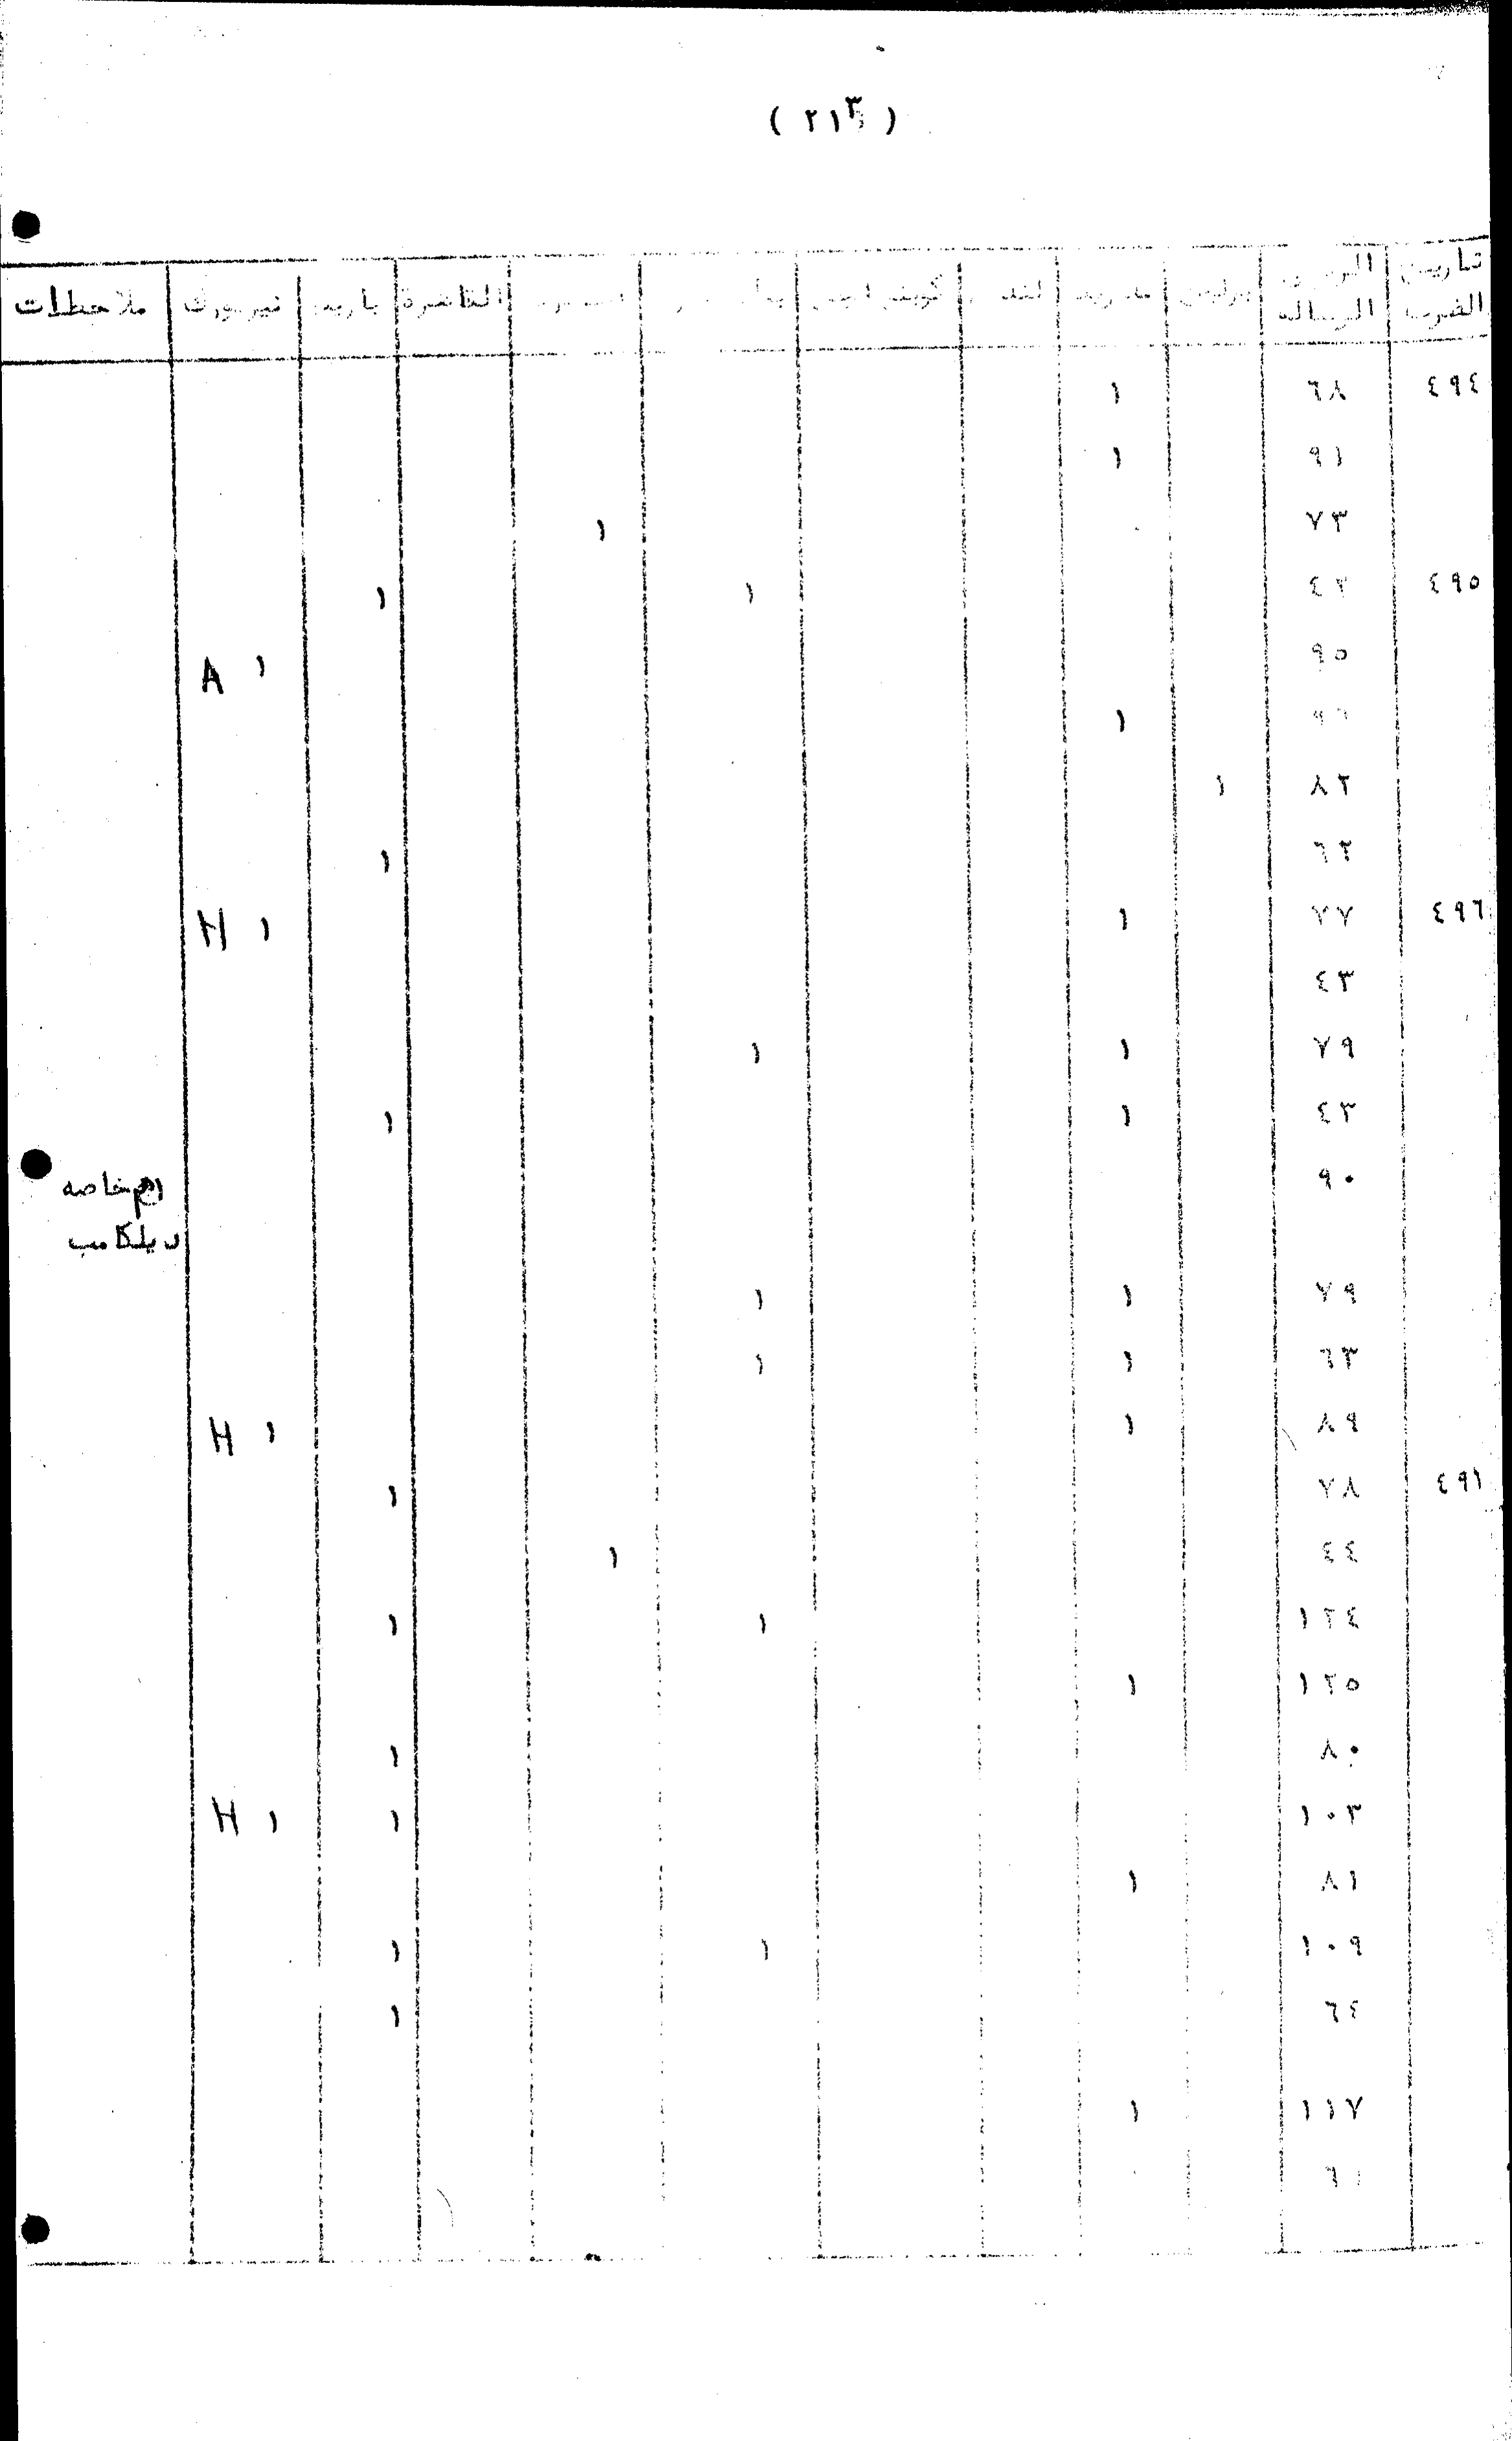 ( ٢١٣ )
تاريخ الضرب | الرسالة | برلين | مدريد | كوبنهاجن | القاهرة | باريس | نيويورك | ملاحظات
٤٩٤ ٦٨ ١
٩١ ١
٧٣ ١
٤٩٥ ٤٢ ١ ١
٩٥ ١ A
٩٦ ١
٨٢ ١
٦٢ ١
٤٩٦ ٧٧ ١ ١ H
٤٣
٧٩ ١ ١
٤٣ ١ ١
٩٠ خاصه
٧٩ ١ ١
٦٣ ١ ١
٨٩ ١ ١ H
٤٩٦ ٧٨ ١
٤٤ ١
١٢٤ ١ ١
١٢٥ ١
٨٠ ١
١٠٣ ١ ١ H
٨١ ١
١٠٩ ١ ١
٦٤ ١
١١٧ ١